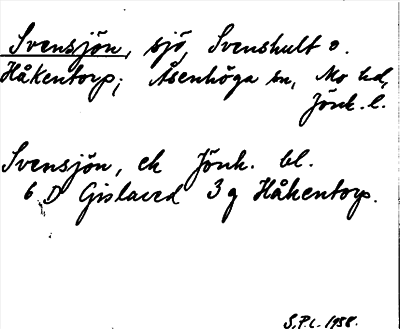 Svensjön, sjö, Svenshult o.
Håkentorp; Åsenhöga sn, Mo hd,
Jönk. l.
Svensjön, ek Jönk. bl.
6 D Gislaved 3 g Håkentorp.
S.P.L. 1958.